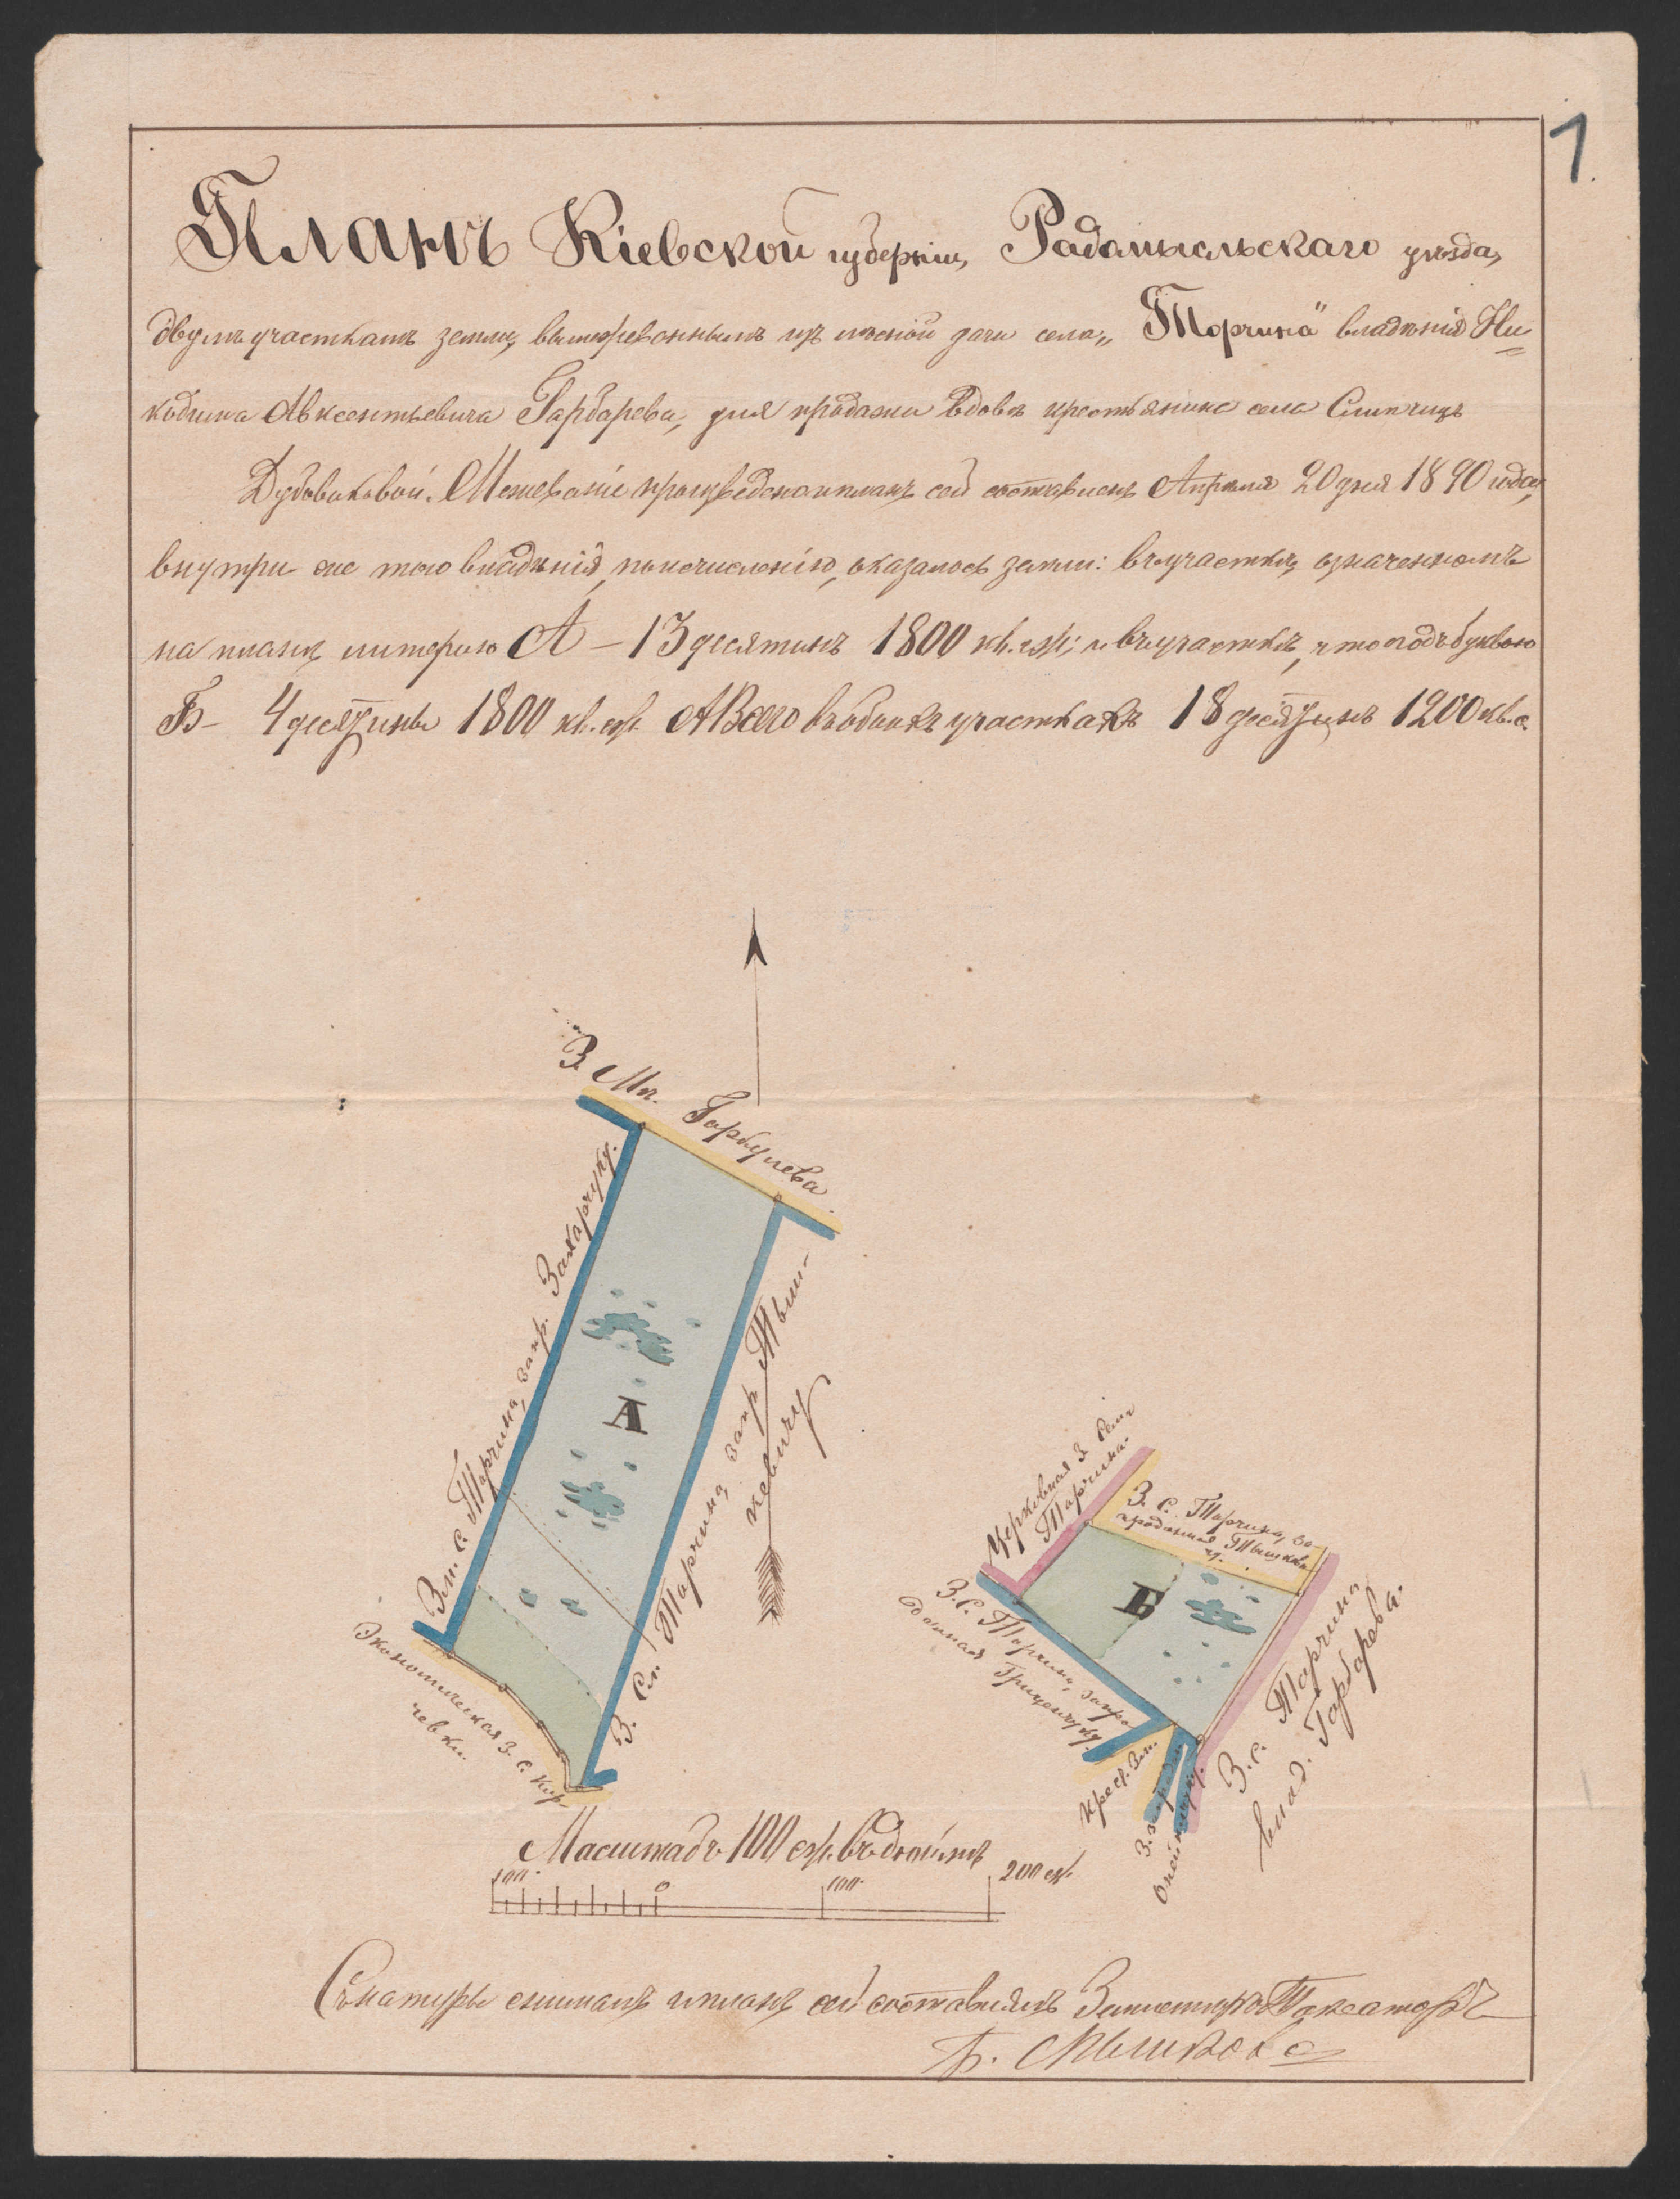 1.
Планъ Кіевской губерніи, Радомысльскаго уѣзда,
двумъ участкамъ земли, вымежеваннымъ изъ лѣсной дачи села „Торчина" владѣнія Ни-
кодима Авксентьевича Гарбарева, для продажи вдовѣ крестьянина села Слипчицъ
Дубовиковой. Межеваніе произведено и планъ сей составленъ Апрѣля 20 дня 1890 года,
внутри же того владѣнія, по исчисленію, оказалось земли: въ участкѣ, означенномъ
на планѣ литерою А – 13 десятинъ 1800 кв. саж; и въ участкѣ, что подъ буквою
Б – 4 десятины 1800 кв. саж. А Всего въ обоихъ участкахъ 18 десятинъ 1200 кв. с.
З. Мѣ. Горбулева
Зем. С. Торчина, запр. Захарчуку.
А
З. Сел. Торчина, запр. Тыш-
кевичу
Экономическая З. С. Кор-
чевки.
Церковная З. Села
Торчина.
З. С. Торчина, за-
проданная Тышкеви-
чу.
Б
З. С. Торчина, запро
данная Гриценчуку.
Крест. Зем.
З. запродан
Олейнчуку.
З. С. Торчина
влад. Гарбарева.
Масштабъ 100 саж. въ дюймѣ
100. 0 100. 200 саж.
Съ натуры снималъ и планъ сей составлялъ Землемѣръ Таксаторъ